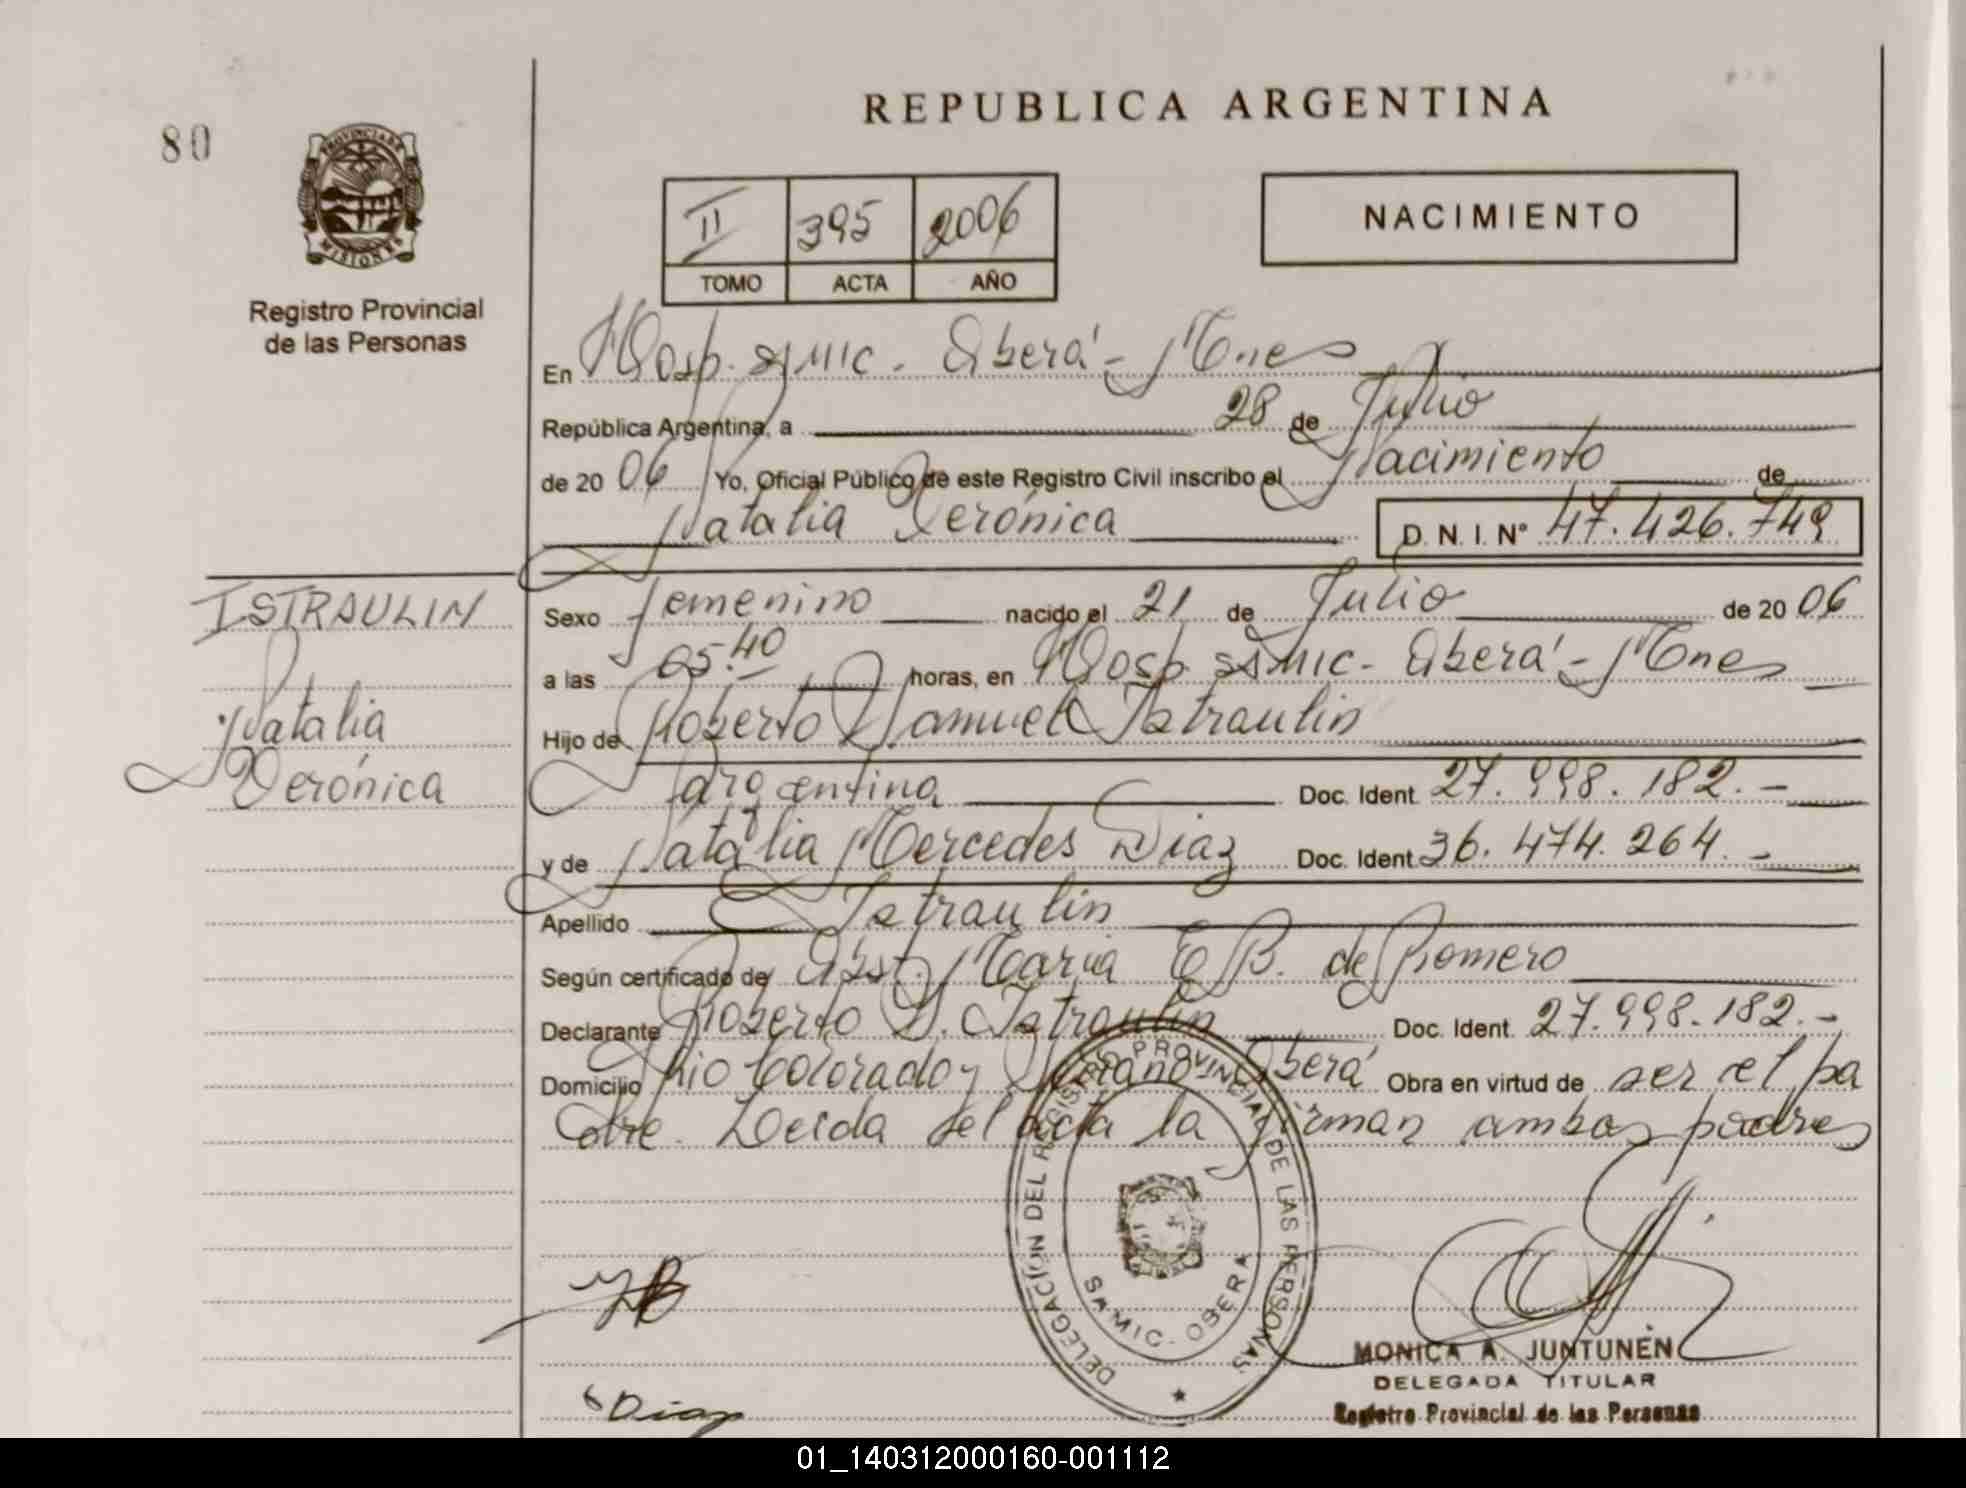 REPUBLICA ARGENTINA
80
PROVINCIA DE
MISIONES
Registro Provincial
de las Personas
II 395 2006
TOMO ACTA AÑO
NACIMIENTO
En Hosp. SAMIC. Oberá - Mnes
República Argentina, a 28 de Julio
de 20 06 Yo, Oficial Público de este Registro Civil inscribo el Nacimiento de
Natalia Verónica
D. N. I. Nº 47.426.749
ISTRAULIN
Natalia
Verónica
Sexo femenino nacido el 21 de Julio de 20 06
a las 05.40 horas, en Hosp. SAMIC - Oberá - Mnes
Hijo de Roberto Samuel Istraulin
Argentina Doc. Ident. 27.998.182.-
y de Natalia Mercedes Diaz Doc. Ident. 36.474.264.-
Apellido Istraulin
Según certificado de Obst. Maria E B. de Romero
Declarante Roberto S. Istraulin Doc. Ident. 27.998.182.-
Domicilio Rio Colorado y Oberá Obra en virtud de ser el pa
dre. Leida el acta la firman ambos padres
DELEGACIÓN DEL REGISTRO PROVINCIAL DE LAS PERSONAS
SAMIC. OBERA
Diaz
MONICA A. JUNTUNEN
DELEGADA TITULAR
Registro Provincial de las Personas
01_140312000160-001112